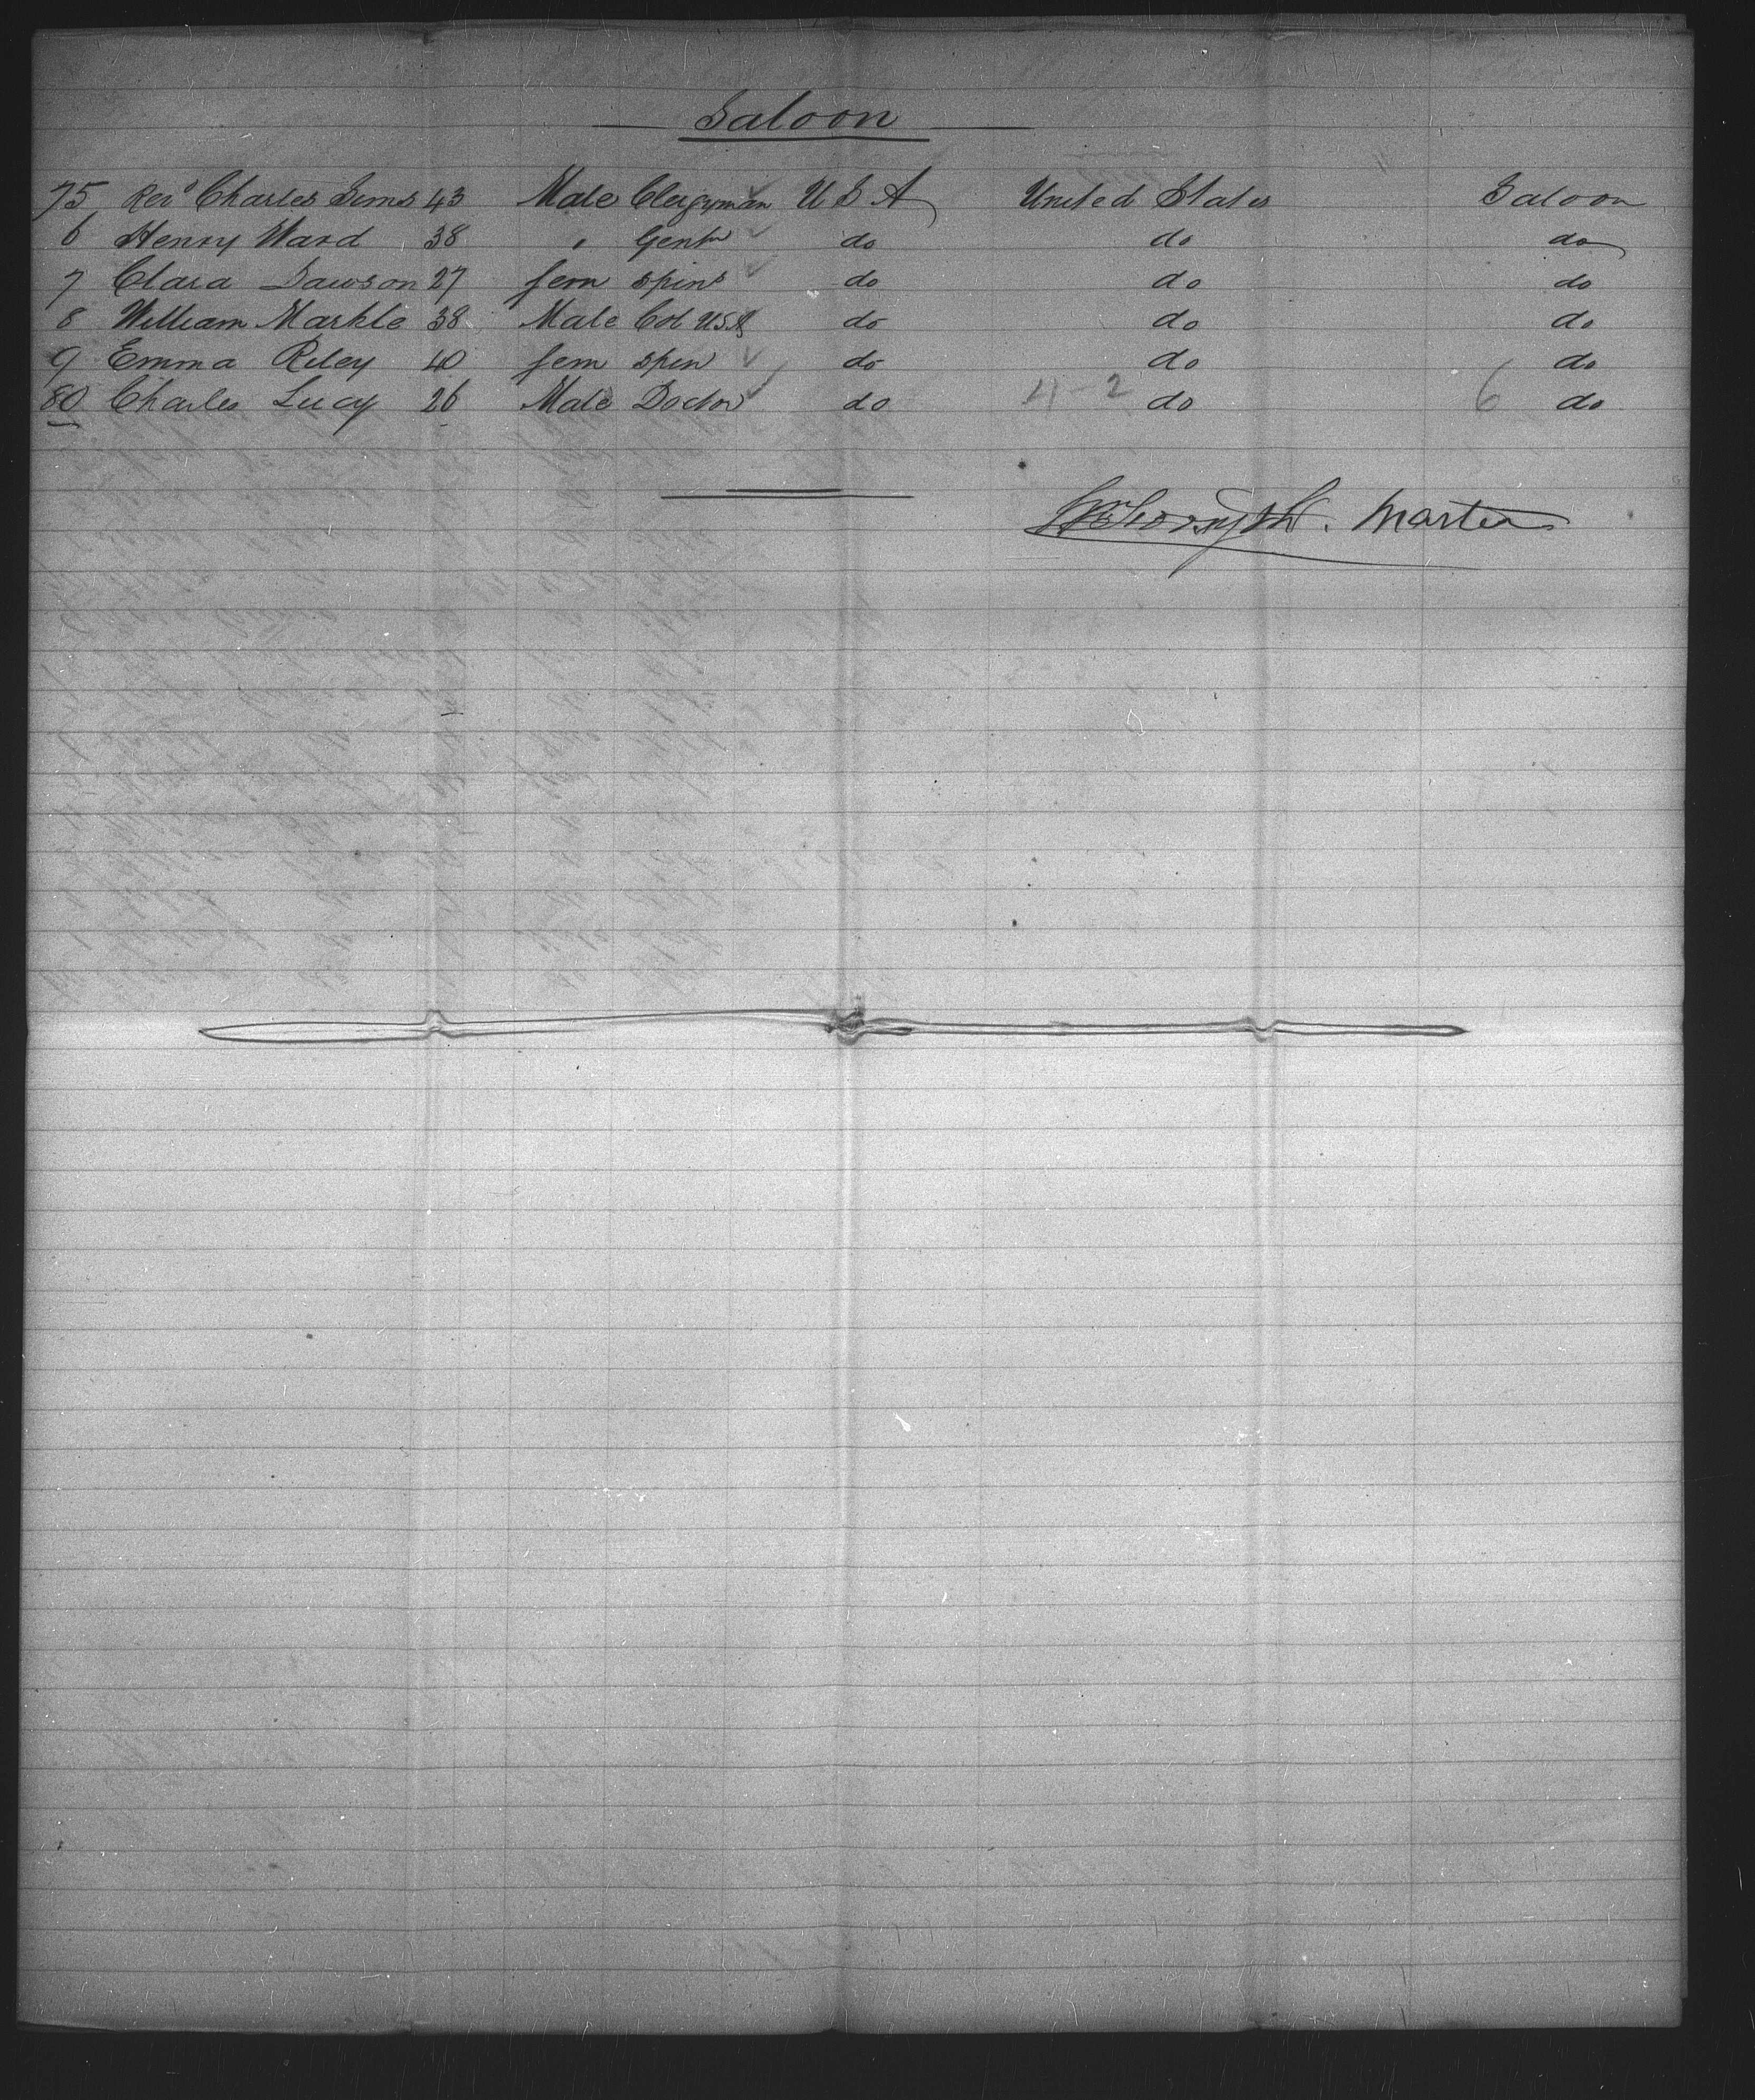 Saloon
75 Revd Charles Sims 43 Male Clergyman U S A United States Saloon
6 Henry Ward 38 " Gentn do do do
7 Clara Dawson 27 fem spins do do do
8 William Markle 38 Male Col USA do do do
9 Emma Riley 40 fem spin do do do
80 Charles Lucy 26 Male Doctor do 4-2 do 6 do
Forsyth. Master